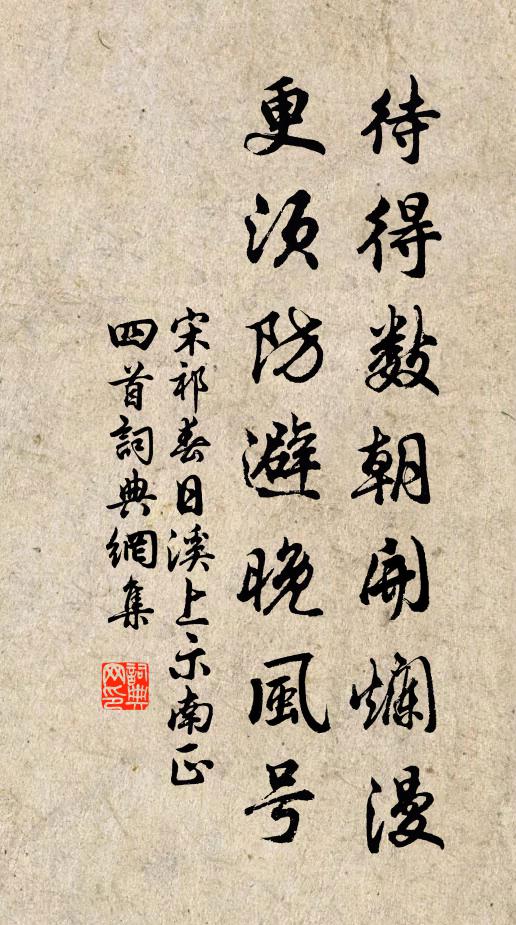 待得数朝開爛漫
更須防避晚風号
宋祁春日溪上示南正
四首詞典網集
詞典网印